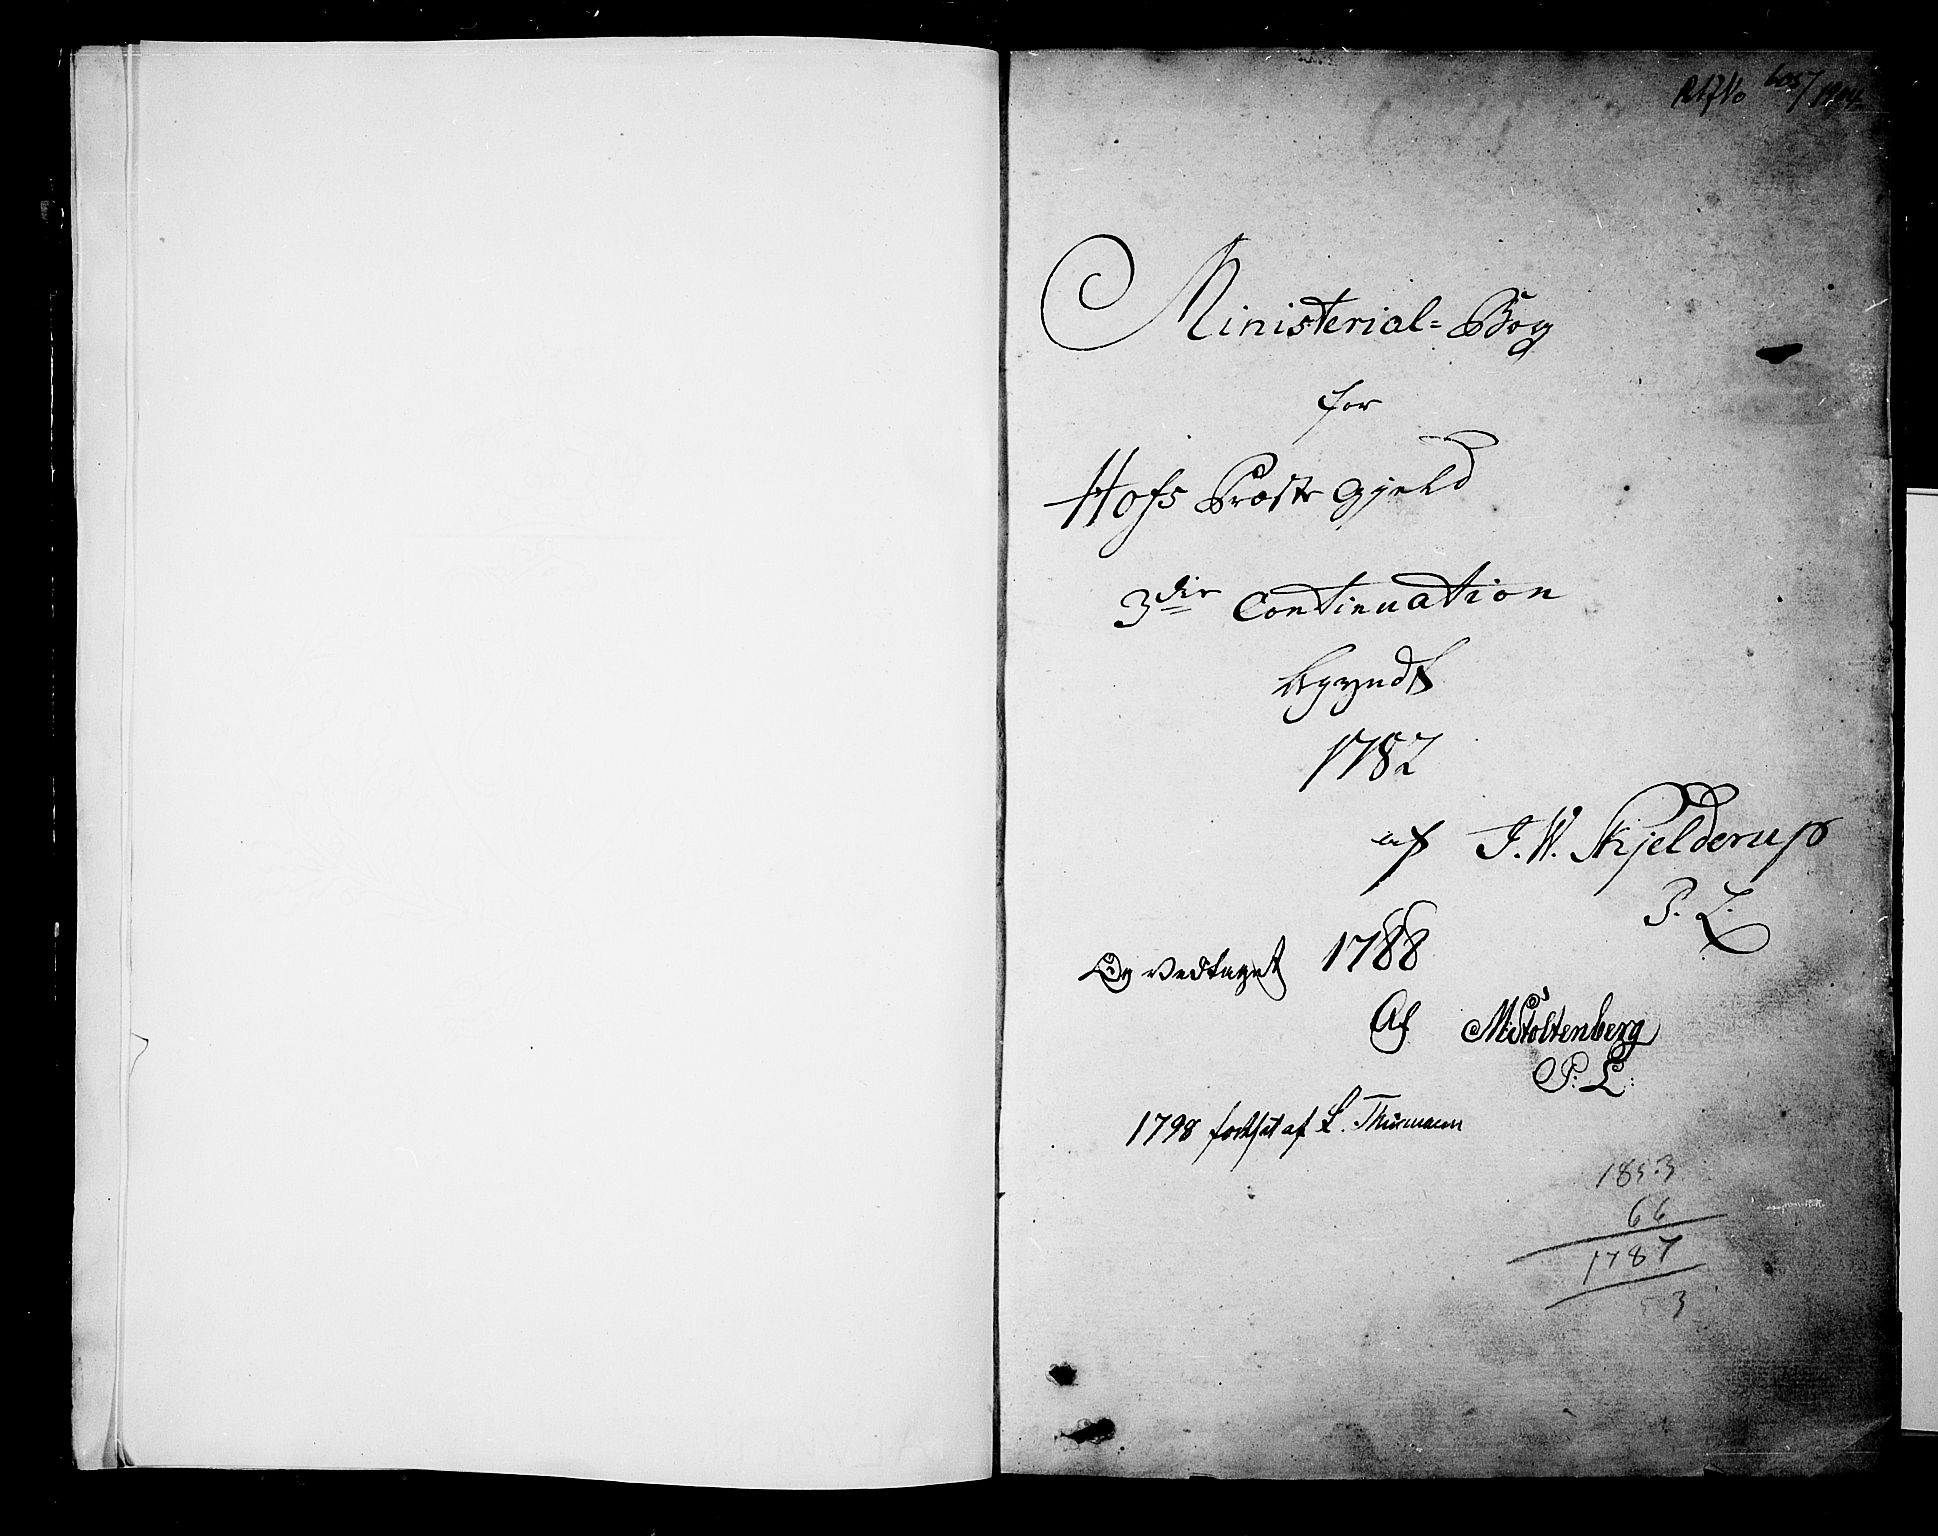 Ministerial= Bog
for
Hofs Præste Gjeld
3die Continuation
begyndt
1782
af J. W. Skjelderup
P. L.
Og vedtaget 1788
Af M: Stoltenberg
P: L:
1798 fortsat af L. Thurmann
1853
66
1787
53